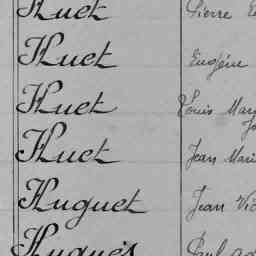 Huet Pierre
Huet Eugène
Huet Louis Mar
Huet Jean Mari
Huguet Jean Vic
Hugues Paul